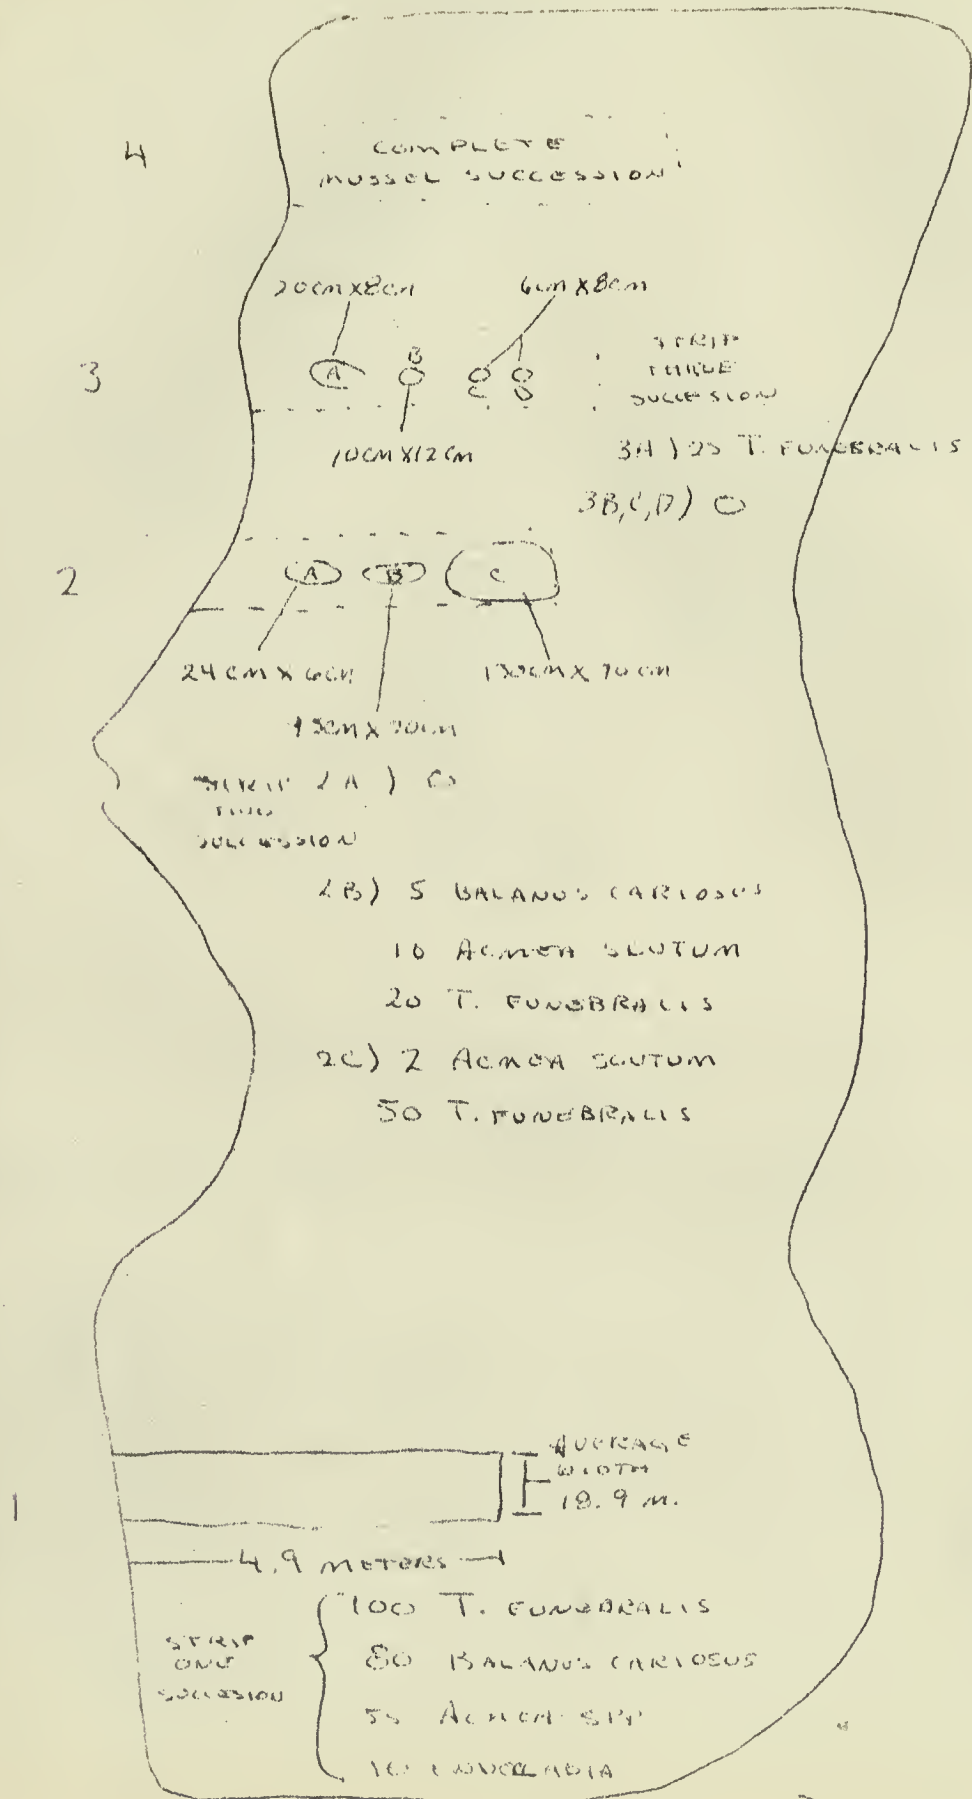 4
COMPLETE
MUSSEL SUCCESSION
20cm X 8cm
6cm X 8cm
3
A
B
C
D
STRIP
THREE
SUCCESSION
10CM X 12CM
3A) 25 T. FUNEBRALIS
3B,C,D) O
2
A
B
C
24 CM X 6CM
130CM X 70 CM
STRIP 2A) O
TWO
SUCCESSION
2B) 5 BALANUS CARIOSUS
10 ACMEA SCUTUM
20 T. FUNEBRALIS
2C) 2 ACMEA SCUTUM
50 T. FUNEBRALIS
1
AVERAGE
WIDTH
18.9 M.
4.9 METERS
STRIP
ONE
SUCCESION
100 T. FUNEBRALIS
80 BALANUS CARIOSUS
ACMEA SPP
10